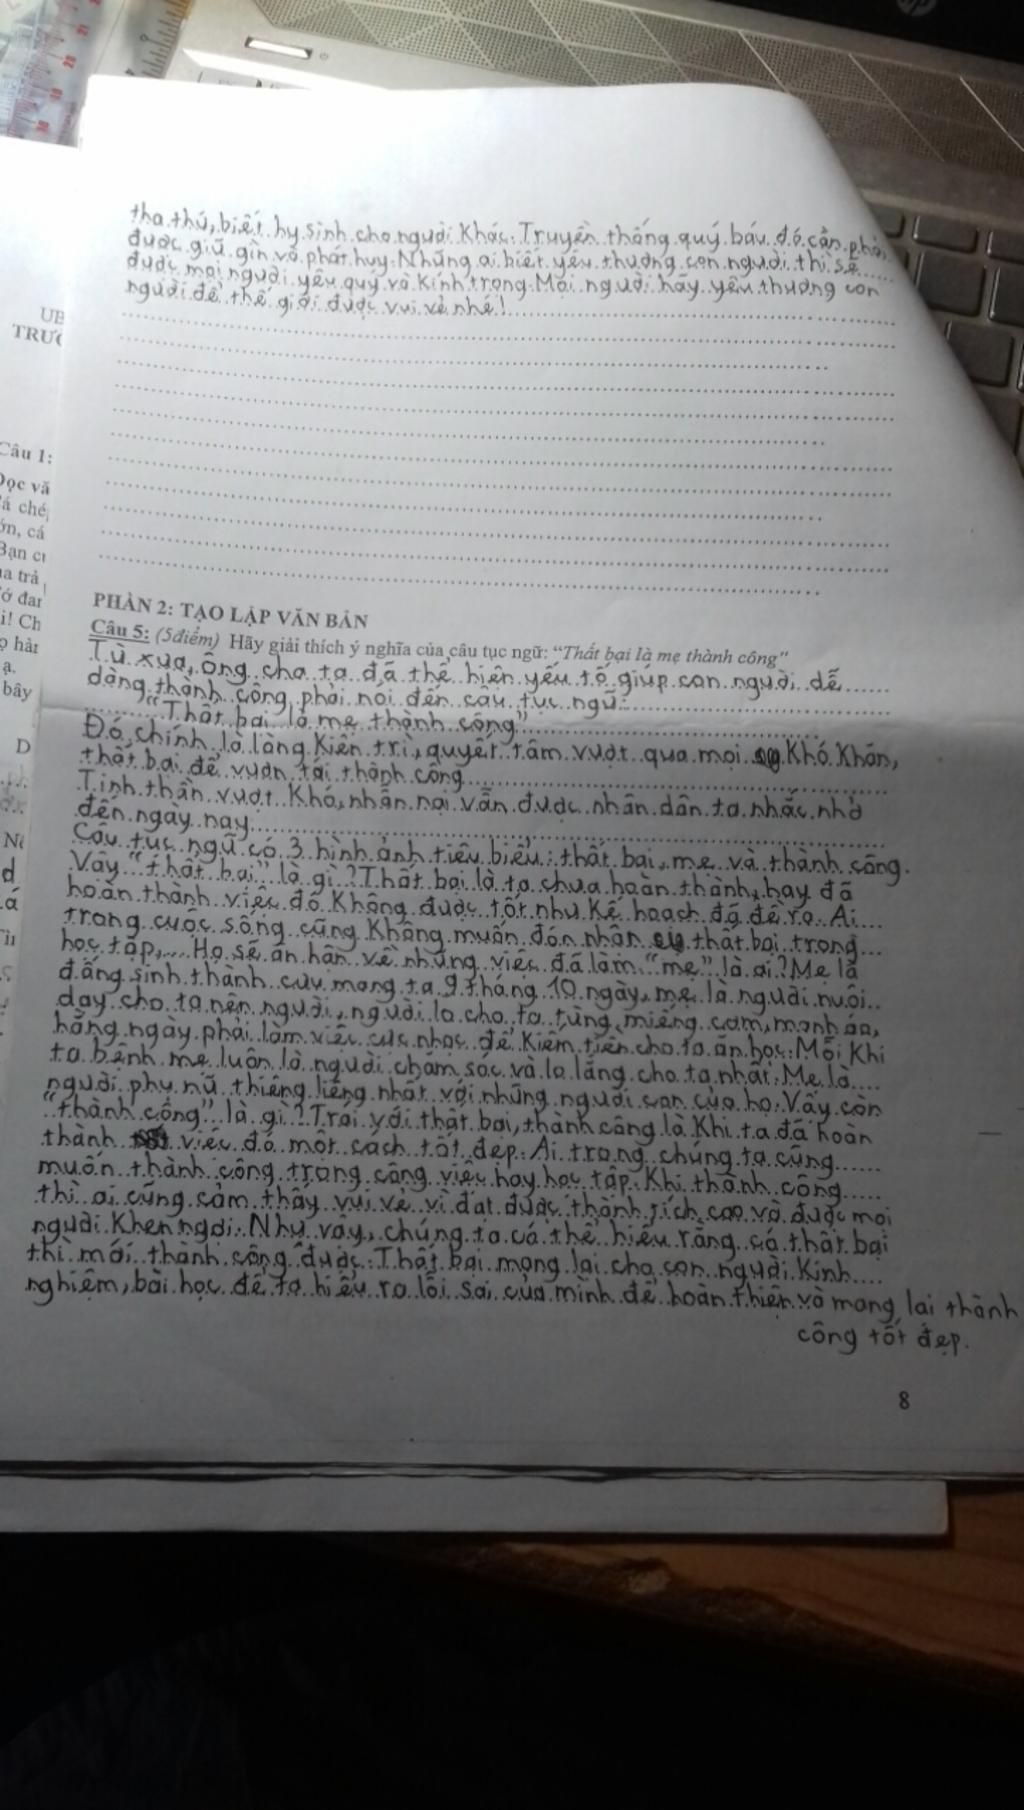 tha thứ, biết hy sinh cho người khác. Truyền thống quý báu đó cần phải
được giữ gìn và phát huy. Những ai biết yêu thương con người thì sẽ
được mọi người yêu quý và kính trọng. Mọi người hãy yêu thương con
người để thế giới được vui vẻ nhé!
UB
TRƯỜ
Câu 1:
Đọc vă
á ché
ớn, cá
Bạn cu
ua trả
ớ đan
i! Ch
ọ hàn
ạ.
bây
D
PHẦN 2: TẠO LẬP VĂN BẢN
Câu 5: (5điểm) Hãy giải thích ý nghĩa của câu tục ngữ: “Thất bại là mẹ thành công”
Từ xưa, ông cha ta đã thể hiện yếu tố giúp con người dễ
dàng thành công phải nói đến câu tục ngữ:
“Thất bại là mẹ thành công”
Đó, chính là lòng kiên trì, quyết tâm vượt qua mọi khó khăn,
thất bại để vươn tới thành công
Tinh thần vượt khó, nhẫn nại vẫn được nhân dân ta nhắc nhở
đến ngày nay
Câu tục ngữ có 3 hình ảnh tiêu biểu: thất bại, mẹ và thành công.
Vậy “thất bại” là gì? Thất bại là ta chưa hoàn thành, hay đã
hoàn thành việc đó không được tốt như kế hoạch đã đề ra. Ai
trong cuộc sống cũng không muốn đón nhận thất bại trong
học tập,... Họ sẽ ân hận về những việc đã làm. “mẹ” là ai? Mẹ là
đấng sinh thành cưu mang ta 9 tháng 10 ngày, mẹ là người nuôi
dạy cho ta nên người, người lo cho ta từng miếng cơm, manh áo,
hằng ngày phải làm việc cực nhọc để kiếm tiền cho ta ăn học. Mỗi khi
ta bệnh mẹ luôn là người chăm sóc và lo lắng cho ta nhất. Mẹ là
người phụ nữ thiêng liêng nhất với những người con của họ. Vậy còn
“thành công” là gì? Trái với thất bại, thành công là khi ta đã hoàn
thành việc đó một cách tốt đẹp. Ai trong chúng ta cũng
muốn thành công trong công việc hay học tập. Khi thành công
thì ai cũng cảm thấy vui vẻ vì đạt được thành tích cao và được mọi
người khen ngợi. Như vậy, chúng ta có thể hiểu rằng có thất bại
thì mới thành công được. Thất bại mang lại cho con người kinh
nghiệm, bài học để ta hiểu ra lỗi sai của mình để hoàn thiện và mang lại thành
công tốt đẹp.
8